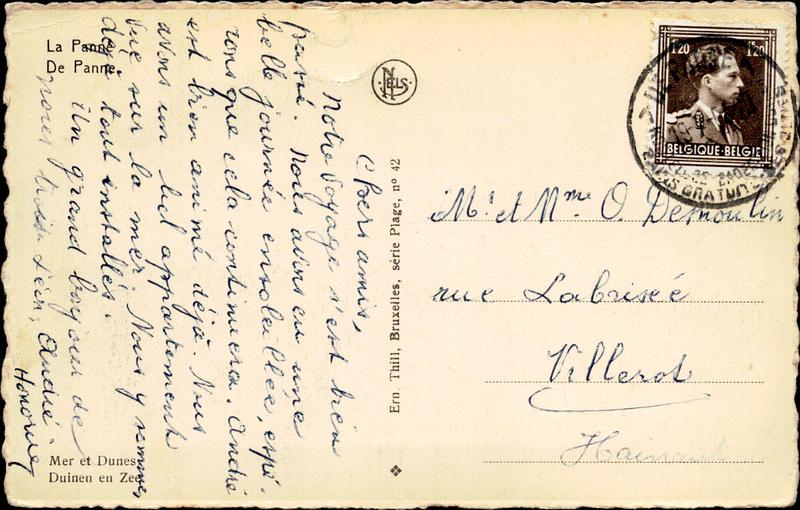 La Panne
De Panne
Chers amis,
Notre voyage s'est bien
passé. Nous avons eu une
belle journée ensoleillée, espé-
rons que cela continuera. André
est bien animé déjà. Nous
avons un bel appartement
vue sur la mer. Nous y sommes
déjà tout installés.
Un grand bonjour de
nous trois. Léon, André.
Honorine
Mer et Dunes
Duinen en Zee
NELS
Ern. Thill, Bruxelles, série Plage, nº 42
1.20 1.20
BELGIQUE-BELGIE
Mr et Mme O. Desmoulin
rue Labrisée
Villerot
Hainaut